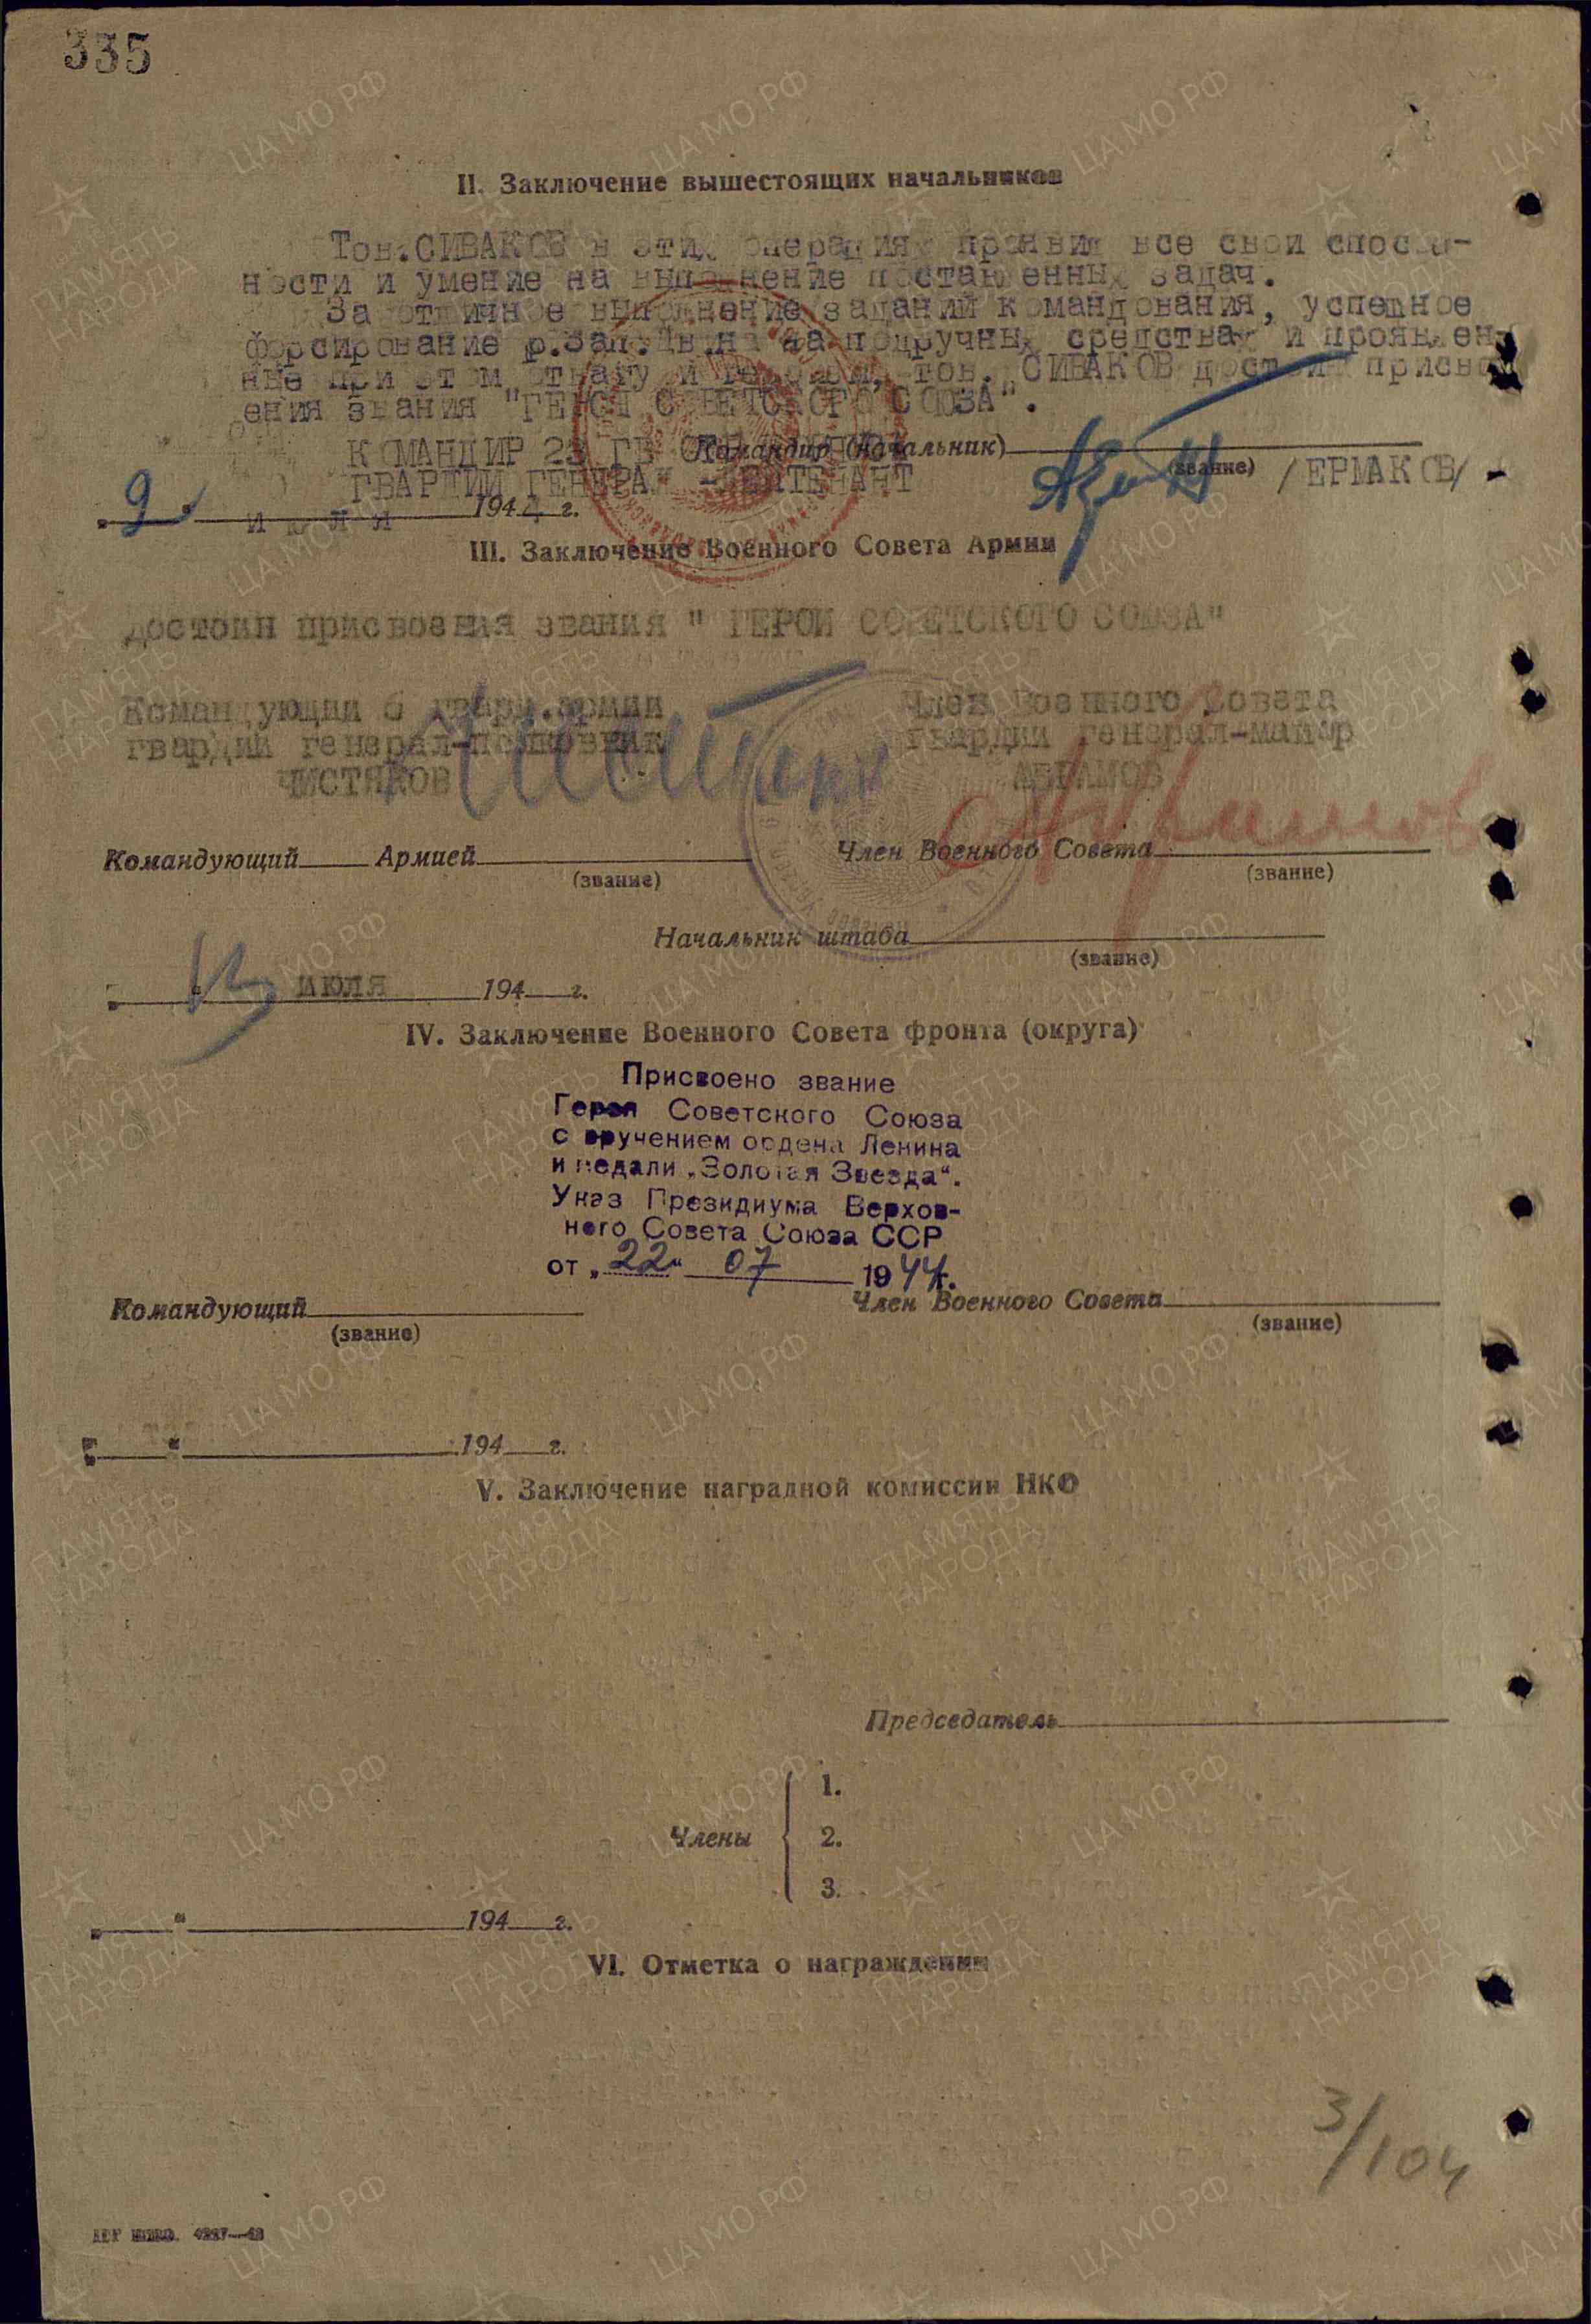 335
II. Заключение вышестоящих начальников
Тов.СИВАКОВ в этих операциях проявил все свои способ-
ности и умение на выполнение поставленных задач.
За отличное выполнение заданий командования, успешное
форсирование р.Зап.Двина на подручных средствах и проявлен-
ные при этом отвагу и героизм, тов. СИВАКОВ достоин присво-
ения звания "ГЕРОЯ СОВЕТСКОГО СОЮЗА".
КОМАНДИР 23 ГВ Командир (Начальник)
ГВАРДИИ ГЕНЕРАЛ - ЛЕЙТЕНАНТ (звание) /ЕРМАКОВ/
„9" июля 1944 г.
III. Заключение Военного Совета Армии
Достоин присвоения звания " ГЕРОЙ СОВЕТСКОГО СОЮЗА"
Командующий 6 гвард.армии Член Военного Совета
гвардии генерал-полковник гвардии генерал-майор
ЧИСТЯКОВ АБРАМОВ
Командующий Армией Член Военного Совета
(звание) (звание)
Начальник штаба
(звание)
июля 194 г.
IV. Заключение Военного Совета фронта (округа)
Присвоено звание
Героя Советского Союза
с вручением ордена Ленина
и медали „Золотая Звезда".
Указ Президиума Верхов-
ного Совета Союза ССР
от „22" 07 1944г.
Командующий Член Военного Совета
(звание) (звание)
„ " 194 г.
V. Заключение наградной комиссии НКО
Председатель
1.
Члены 2.
3.
„ " 194 г.
VI. Отметка о награждении
3/104
ПАМЯТЬ НАРОДА
ЦА МО РФ